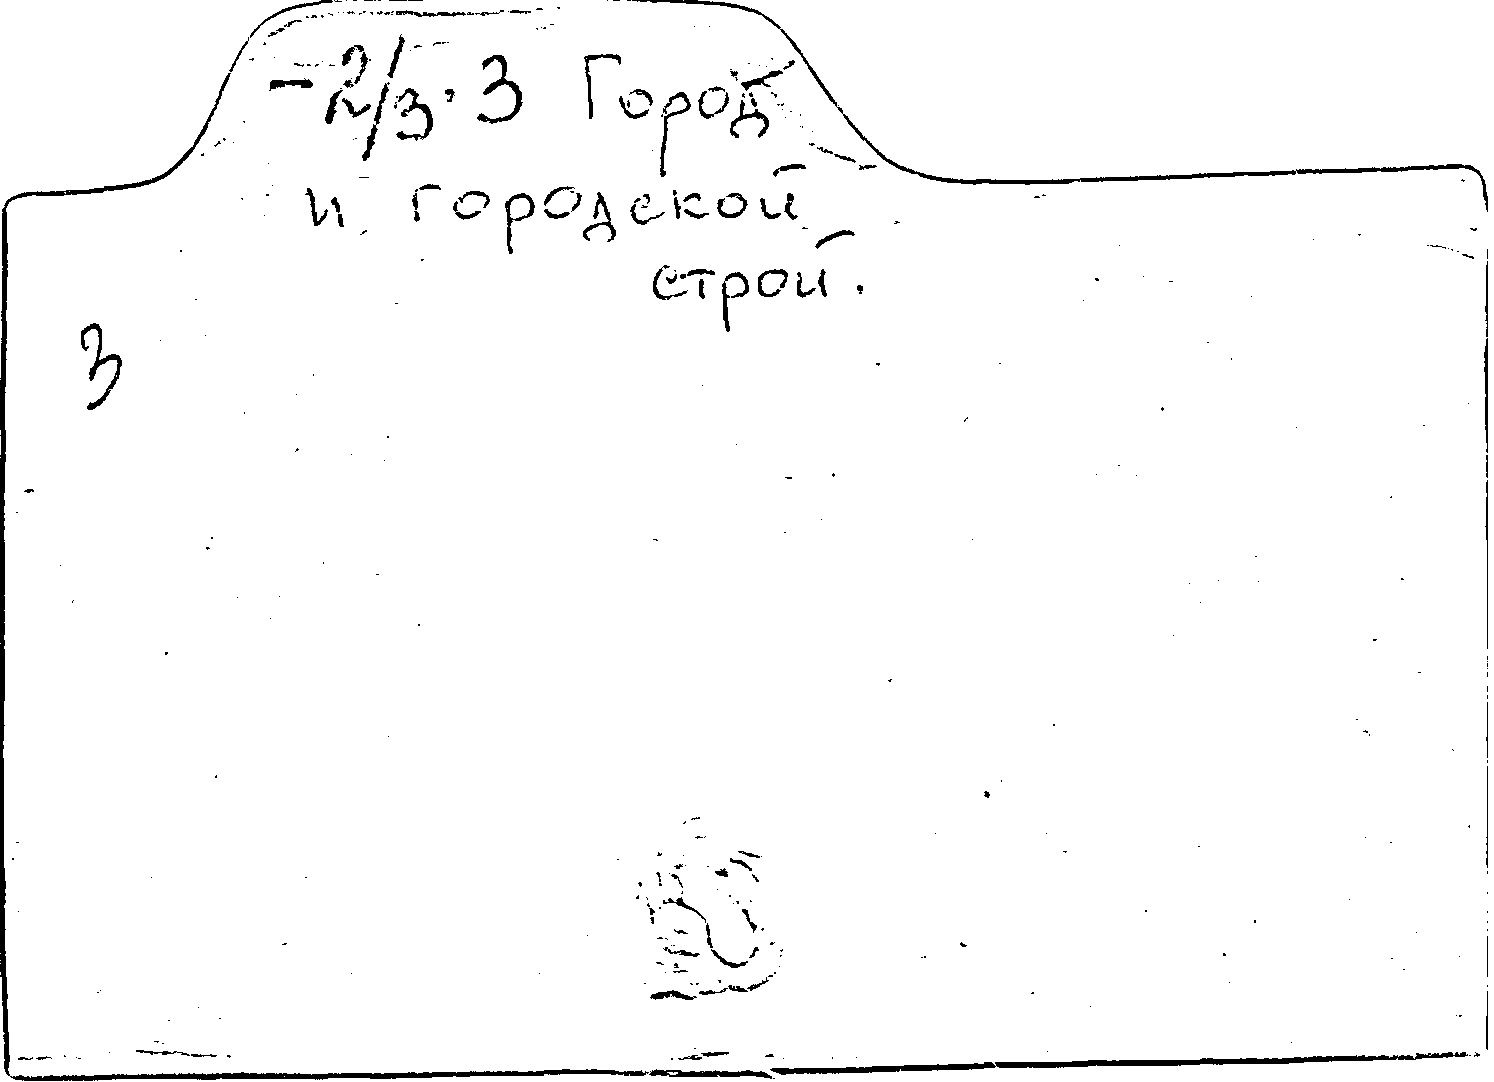 -2/3.3 Город
и городской
строй.
3